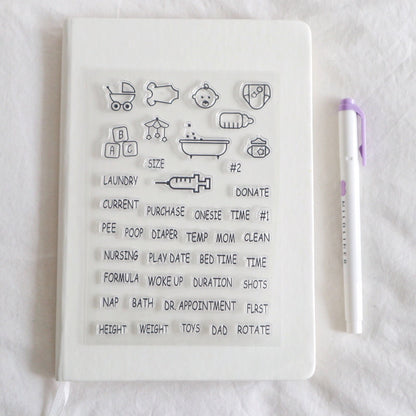 B
A C
SIZE #2
LAUNDRY DONATE
CURRENT PURCHASE ONESIE TIME #1
PEE POOP DIAPER TEMP MOM CLEAN
NURSING PLAY DATE BED TIME TIME
FORMULA WOKE UP DURATION SHOTS
NAP BATH DR. APPOINTMENT FLRST
HEIGHT WEIGHT TOYS DAD ROTATE
MILDLINER